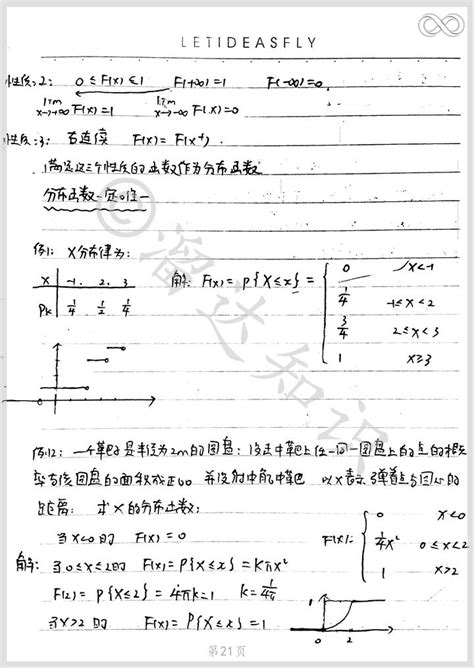 LETIDEASFLY
性质2: 0≤F(x)≤1 F(+∞)=1 F(-∞)=0.
lim x→+∞ F(x)=1 lim x→-∞ F(x)=0
性质3: 右连续 F(x)=F(x⁺).
满足这三个性质的函数作为分布函数
分布函数一定唯一
例1: X分布律为:
X -1. 2. 3
Pk 1/4 1/2 1/4
解: F(x)=P{X≤x}= { 0 x<-1
1/4 -1≤x<2
3/4 2≤x<3
1 x≥3
0
例2: 一个靶子是半径为2m的圆盘: 设击中靶上任一同一圆盘上的点的概
率与该圆盘的面积成正比 并设射中能中靶 以X表示弹着点与圆心的
距离: 求X的分布函数:
当x<0时 F(x)=0
F(x)= { 0 x<0
1/4x² 0≤x<2
1 x≥2
解: 当0≤x≤2时 F(x)=P{X≤x}=Kπx²
F(2)=P{X≤2}=4πk=1 k=1/4π
当x>2时 F(x)=P{X≤x}=1
1
0 2
第21页
©溜达知识